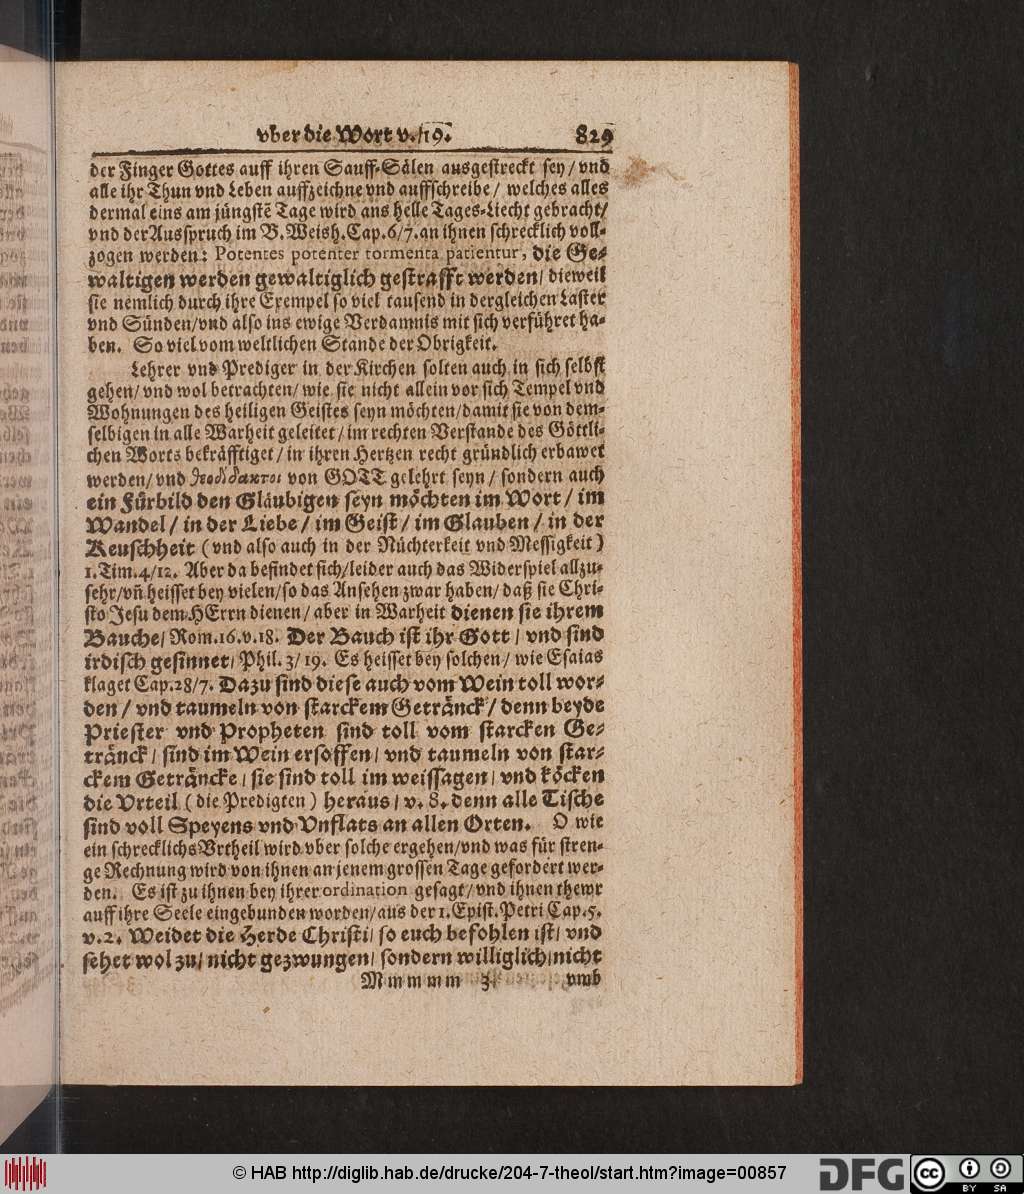 vber die Wort v. 19. 829
der Finger Gottes auff ihren Sauff-Sälen ausgestreckt sey / vnd
alle ihr Thun vnd Leben auffzeichne vnd auffschreibe / welches alles
dermal eins am jüngstē Tage wird ans helle Tages-Liecht gebracht /
vnd der Ausspruch im B. Weish. Cap. 6/7. an ihnen schrecklich voll-
zogen werden: Potentes potenter tormenta patientur, die Ge-
waltigen werden gewaltiglich gestrafft werden / dieweil
sie nemlich durch ihre Exempel so viel tausend in dergleichen Laster
vnd Sünden / vnd also ins ewige Verdamnis mit sich verführet ha-
ben. So viel vom weltlichen Stande der Obrigkeit.
Lehrer vnd Prediger in der Kirchen solten auch in sich selbst
gehen / vnd wol betrachten / wie sie nicht allein vor sich Tempel vnd
Wohnungen des heiligen Geistes seyn möchten / damit sie von dem-
selbigen in alle Warheit geleitet / im rechten Verstande des Göttli-
chen Worts bekräfftiget / in ihren Hertzen recht gründlich erbawet
werden / vnd θεοδίδακτοι von GOTT gelehrt seyn / sondern auch
ein Fürbild den Gläubigen seyn möchten im Wort / im
Wandel / in der Liebe / im Geist / im Glauben / in der
Keuschheit (vnd also auch in der Nüchterkeit vnd Messigkeit)
1. Tim. 4/12. Aber da befindet sich / leider auch das Widerspiel allzu-
sehr / vñ heisset bey vielen / so das Ansehen zwar haben / daß sie Chri-
sto Jesu dem HErrn dienen / aber in Warheit dienen sie ihrem
Bauche / Rom. 16. v. 18. Der Bauch ist ihr Gott / vnd sind
irdisch gesinnet / Phil. 3/19. Es heisset bey solchen / wie Esaias
klaget Cap. 28/7. Dazu sind diese auch vom Wein toll wor-
den / vnd taumeln von starckem Getränck / denn beyde
Priester vnd Propheten sind toll vom starcken Ge-
tränck / sind im Wein ersoffen / vnd taumeln von star-
ckem Geträncke / sie sind toll im weissagen / vnd köcken
die Vrteil (die Predigten) heraus / v. 8. denn alle Tische
sind voll Speyens vnd Vnflats an allen Orten. O wie
ein schrecklichs Vrtheil wird vber solche ergehen / vnd was für stren-
ge Rechnung wird von ihnen an jenem grossen Tage gefordert wer-
den. Es ist zu ihnen bey ihrer ordination gesagt / vnd ihnen thewr
auff ihre Seele eingebunden worden / aus der 1. Epist. Petri Cap. 5.
v. 2. Weidet die Herde Christi / so euch befohlen ist / vnd
sehet wol zu / nicht gezwungen / sondern williglich / nicht
Mmmmm 3 vmb
© HAB http://diglib.hab.de/drucke/204-7-theol/start.htm?image=00857
DFG
cc BY SA